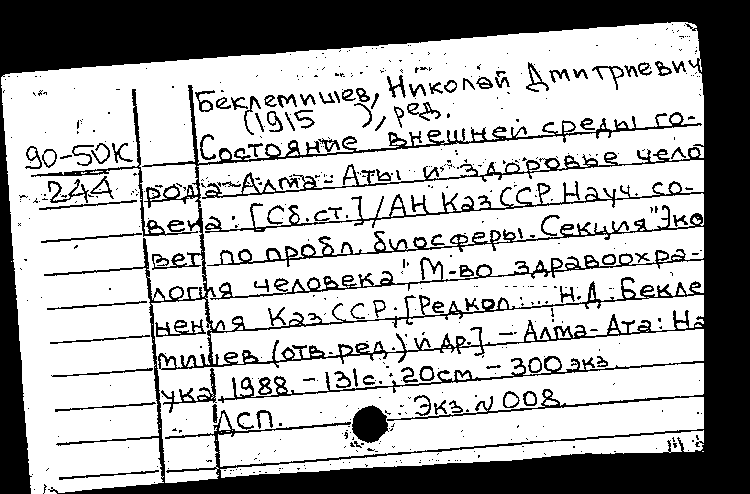 Беклемишев, Николай Дмитриевич
(1915 ), ред.
90-50К Состояние внешней среды го-
244 рода Алма-Аты и здоровье чело
века: [Сб.ст.]/АН КазССР. Науч. со-
вет по пробл. биосферы. Секция "Эко
логия человека", М-во здравоохра-
нения КазССР; [Редкол.: ... Н.Д. Бекле
мишев (отв.ред.) и др.]. - Алма-Ата: На
ука, 1988. - 131с.; 20см. - 300 экз.
ДСП. Экз. N 008.